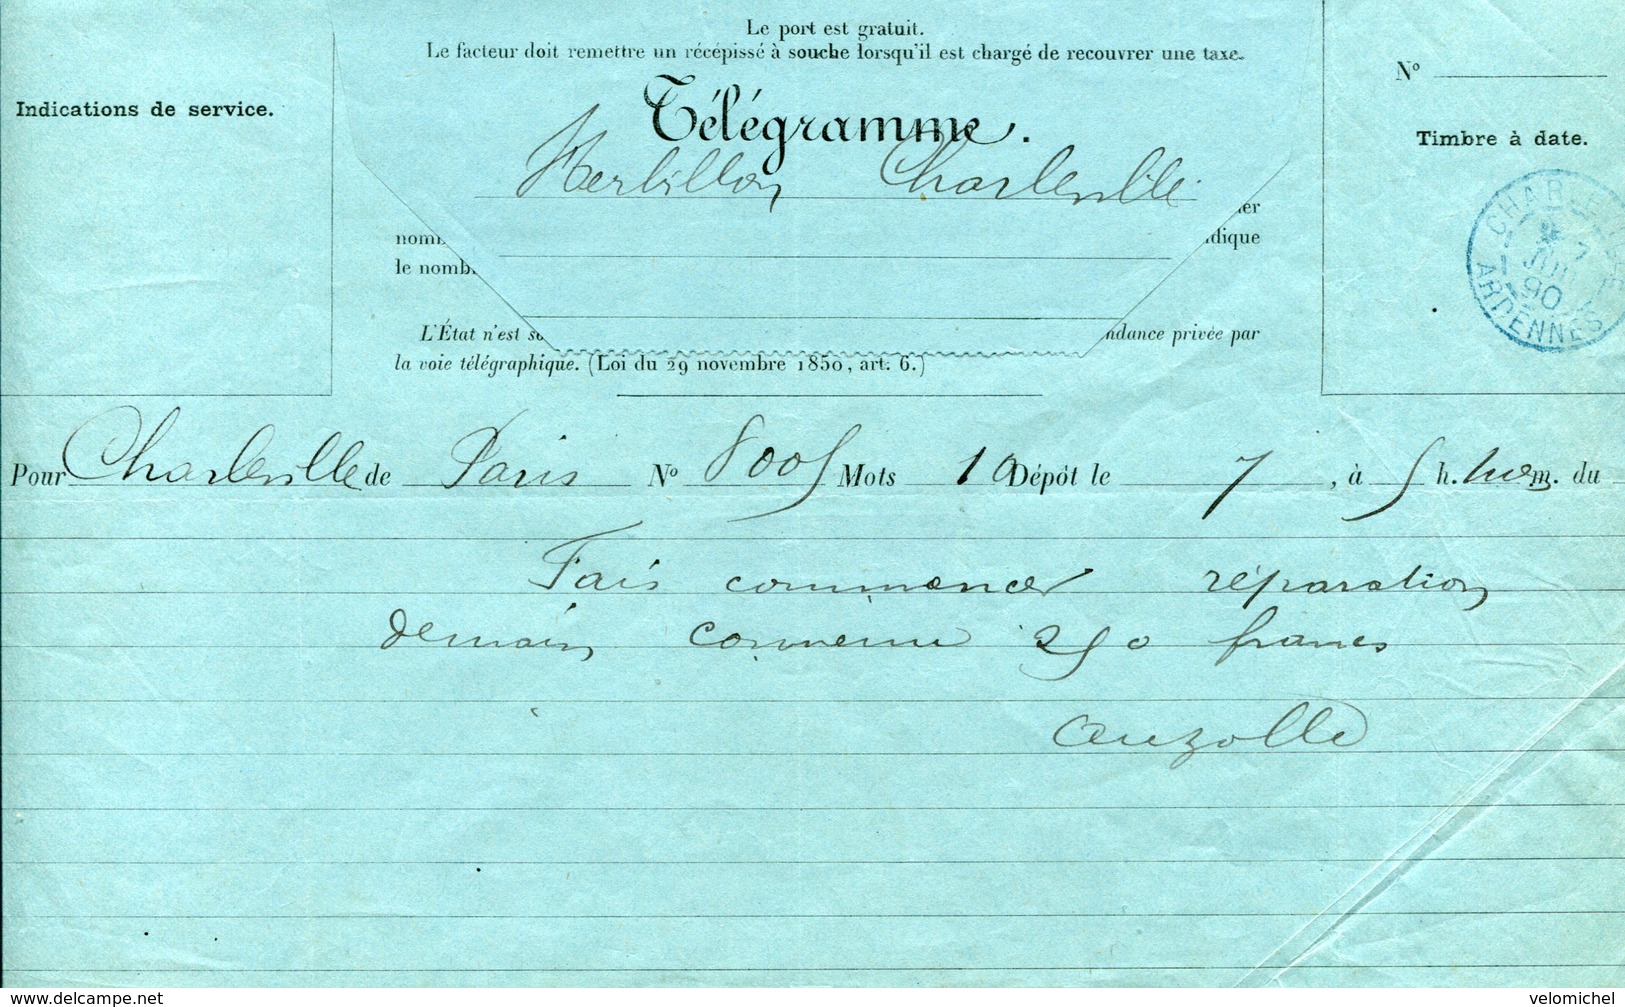 Le port est gratuit.
Le facteur doit remettre un récépissé à souche lorsqu'il est chargé de recouvrer une taxe.
Indications de service.
Télégramme.
N°
Timbre à date.
Herbillon Charleville
CHARLEVILLE
7
JUIL
90
ARDENNES
ier
nom dique
le nomb
L'État n'est so ndance privée par
la voie télégraphique. (Loi du 29 novembre 1850, art. 6.)
Pour Charleville de Paris N° 8005 Mots 10 Dépôt le 7, à 5 h. m. du
Fais commencer réparation
demain convenu 250 francs
Auzolle
delcampe.net
velomichel